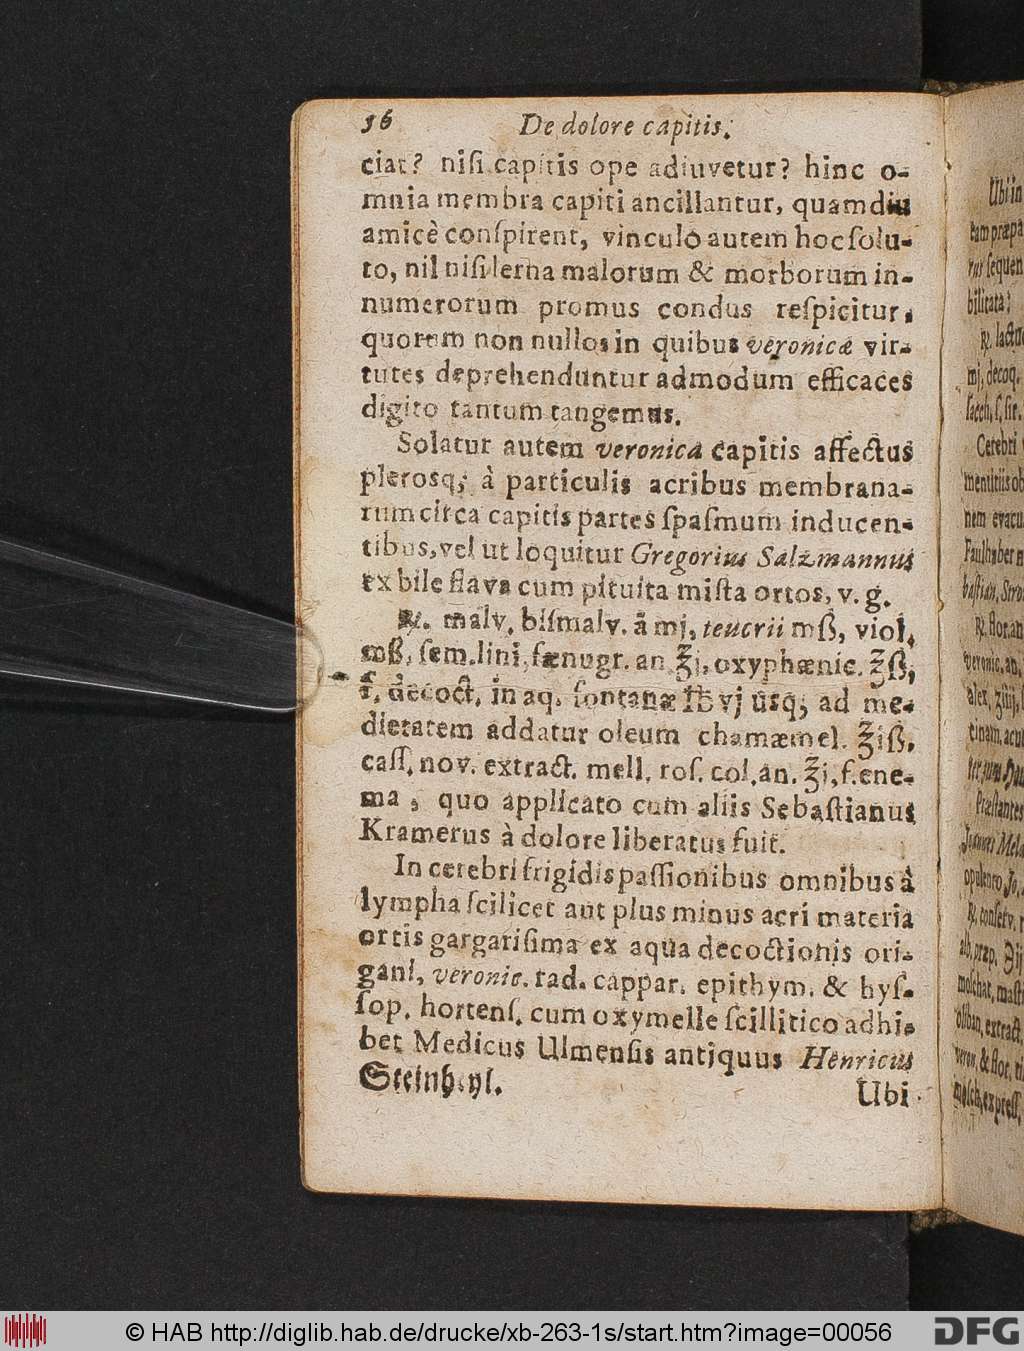 36 De dolore capitis.
ciat? niſi capitis ope adiuvetur? hinc o-
mnia membra capiti ancillantur, quamdiu
amicè conſpirent, vinculo autem hoc ſolu-
to, nil niſi lerna malorum & morborum in-
numerorum promus condus reſpicitur,
quorum non nullos in quibus veronicæ vir-
tutes deprehenduntur admodum efficaces
digito tantum tangemus.
Solatur autem veronica capitis affectus
plerosq; à particulis acribus membrana-
rum circa capitis partes ſpaſmum inducen-
tibus, vel ut loquitur Gregorius Salzmannus
ex bile flava cum pituita miſta ortos, v. g.
℞. malv. biſmalv. ā mj, teucrii mß, viol.
mß, ſem. lini, fænugr. an ℥j, oxyphænic. ℥ß,
f. decoct. in aq. fontanæ ℔ vj usq; ad me-
dietatem addatur oleum chamæmel. ℥iß.
caſſ. nov. extract. mell. roſ. col. an. ℥j, f. ene-
ma, quo applicato cum aliis Sebaſtianus
Kramerus à dolore liberatus fuit.
In cerebri frigidis paſſionibus omnibus à
lympha ſcilicet aut plus minus acri materia
ortis gargariſima ex aqua decoctionis ori-
gani, veronic. rad. cappar. epithym. & hyſ-
ſop. hortenſ. cum oxymelle ſcillitico adhi-
bet Medicus Ulmenſis antiquus Henricus
Steinheyl.
Ubi
Ubi in
tam præpa
rur ſequen
bilitata;
℞. lactuc
mj, decoq.
ſacch. ſ. ſir.
Cerebri
mentitiis ob
nem evacu
Faulhaber
baſtian. Stro
℞. flor. an
veronic. an.
alex. ℥iij,
tinam, acu
Præſtantes
Joannes Mela
opulento Jo.
℞. conſerv. r
alb. præp. ʒij
moſchat. maſti
oliban. extract.
veron. & flor.
moſch. expreſſ.
© HAB http://diglib.hab.de/drucke/xb-263-1s/start.htm?image=00056
DFG